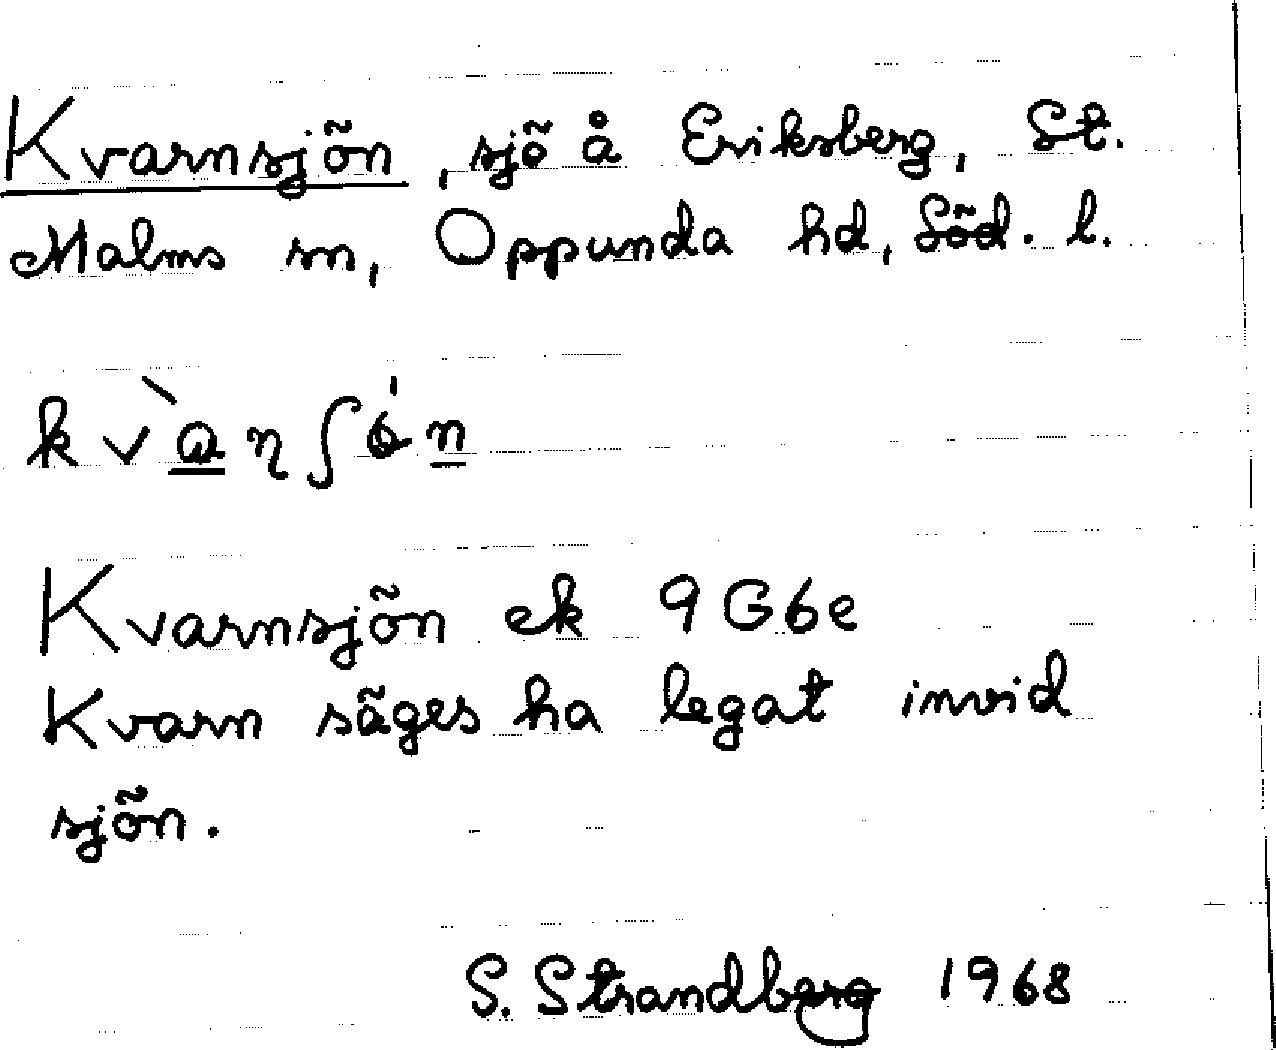 Kvarnsjön, sjö å Eriksberg, St.
Malms sn, Oppunda hd, Söd. l.
Kvarnsjön ek 9G6e
Kvarn säges ha legat invid
sjön.
S. Strandberg 1968